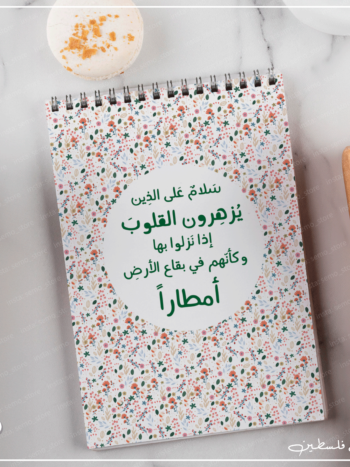 سَلامٌ عَلى الذِين
يُزهِرون القلوبَ
إذا نَزلوا بها
وكأنهم في بقاع الأرضِ
أمطاراً
فلسطين